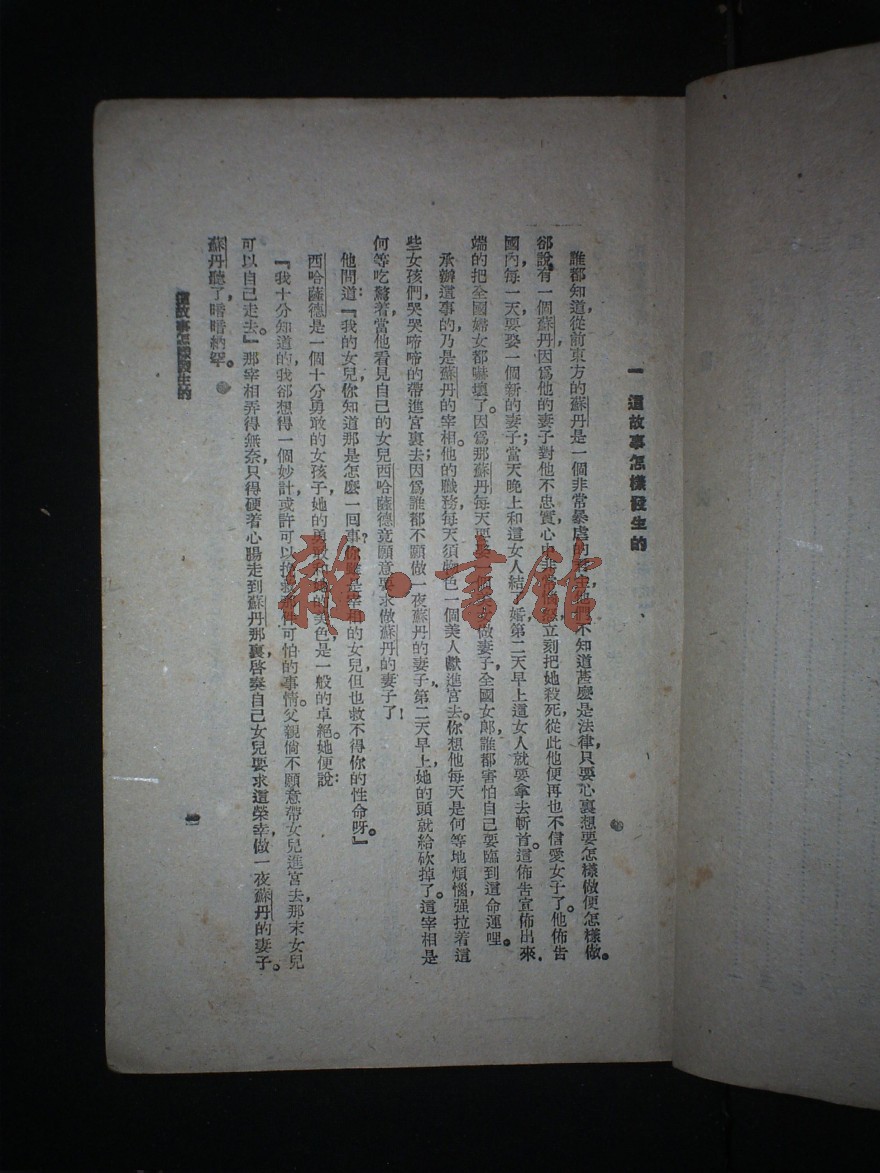 一 這故事怎樣發生的
誰都知道從前東方的蘇丹是一個非常暴虐的不知道甚麼是法律只要心裏想要怎樣做便怎樣做。
卻說有一個蘇丹因爲他的妻子對他不忠實心中非常立刻把她殺死從此他便再也不信愛女子了。他佈告
國內每一天要娶一個新的妻子當天晚上和這女人結了婚第二天早上這女人就要拿去斬首。這佈告宣佈出來，
端的把全國婦女都嚇壞了。因爲那蘇丹每天要娶一個做妻子全國女郎誰都害怕自己要臨到這命運哩。
承辦這事的乃是蘇丹的宰相。他的職務每天須物色一個美人獻進宮去。你想他每天是何等地煩惱，强拉着這
些女孩們，哭哭啼啼的帶進宮裏去；因爲誰都不願做一夜蘇丹的妻子第二天早上她的頭就給砍掉了。這宰相是
何等吃驚着當他看見自己的女兒西哈薩德竟願意要求做蘇丹的妻子了！
他問道：『我的女兒，你知道那是怎麼一回事？你雖是宰相的女兒，但也救不得你的性命呀。』
西哈薩德是一個十分勇敢的女孩子她的勇敢和她的美色是一般的卓絕。她便說：
『我十分知道的，我卻想得一個妙計或許可以挽救那件可怕的事情。父親倘不願意帶女兒進宮去，那末女兒
可以自己走去。』那宰相弄得無奈，只得硬着心腸走到蘇丹那裏，啓奏自己女兒要求這榮幸，做一夜蘇丹的妻子。
蘇丹聽了，暗暗納罕。
這故事怎樣發生的
一
雜·書館